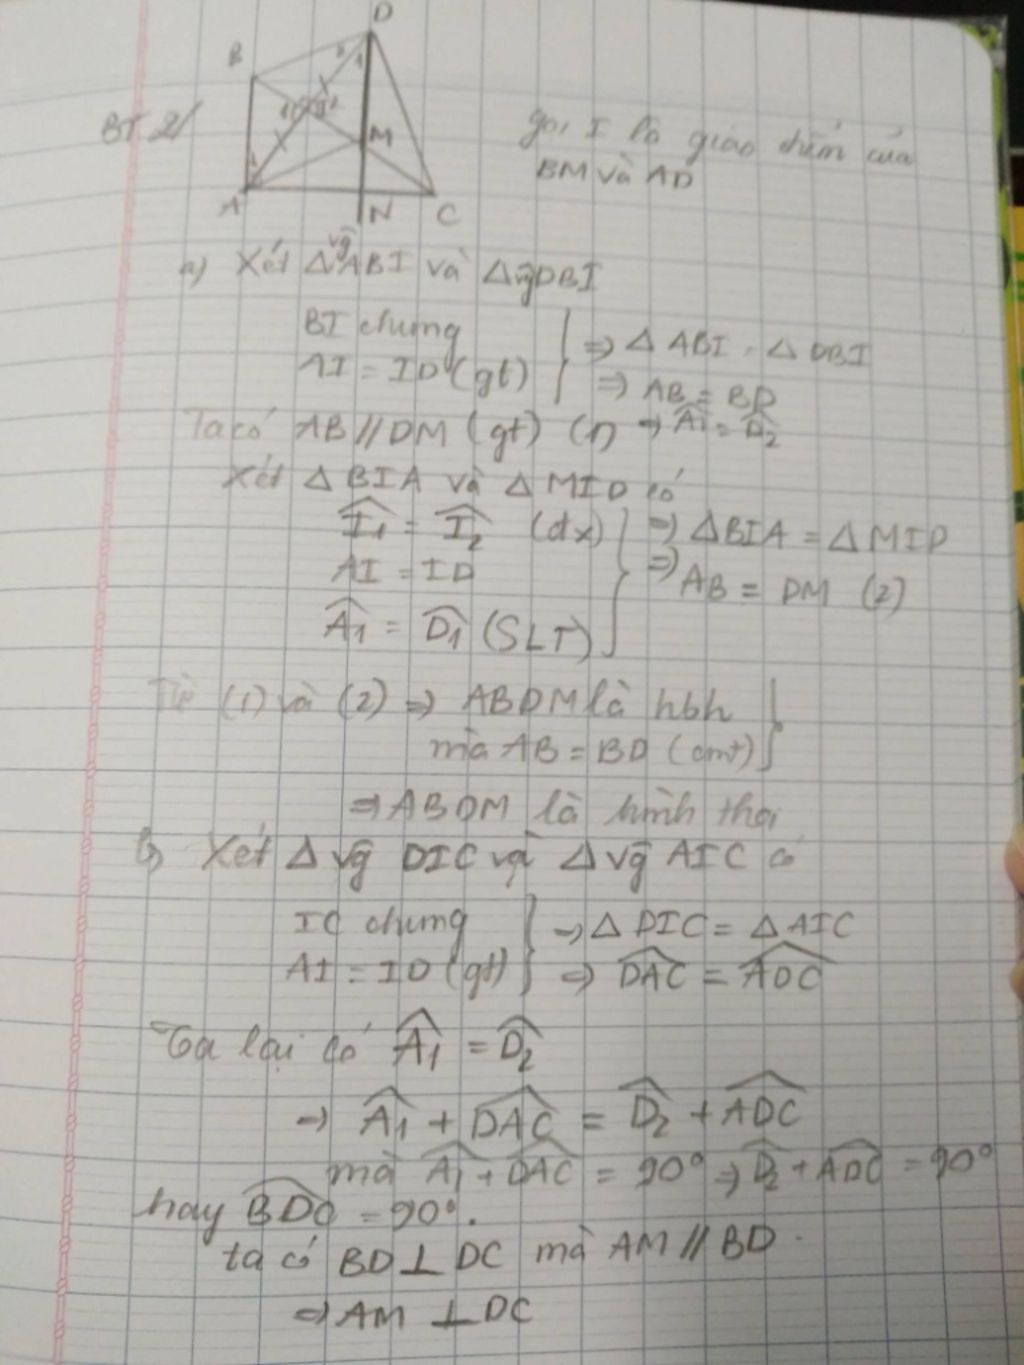 D
B
M
A N C
BT 2/
gọi I là giao điểm của
BM và AD
a) Xét Δ vg ABI và Δ vg DBI
BI chung
AI = ID (gt)
=> Δ ABI = Δ DBI
=> AB = BD
Ta có AB // DM (gt) (1) => Â1 = D̂2
Xét Δ BIA và Δ MID có
Î1 = Î2 (đx)
AI = ID
Â1 = D̂1 (SLT)
=> ΔBIA = ΔMID
=> AB = DM (2)
Từ (1) và (2) => ABDM là hbh
mà AB = BD (cmt)
=> ABDM là hình thoi
b) Xét Δ vg DIC và Δ vg AIC có
IC chung
AI = ID (gt)
=> Δ DIC = Δ AIC
=> DAC = ADC
Ta lại có Â1 = D̂2
=> Â1 + DAC = D̂2 + ADC
mà Â1 + DAC = 90° => D̂2 + ADC = 90°
hay BDC = 90°.
ta có BD ⊥ DC mà AM // BD.
=> AM ⊥ DC